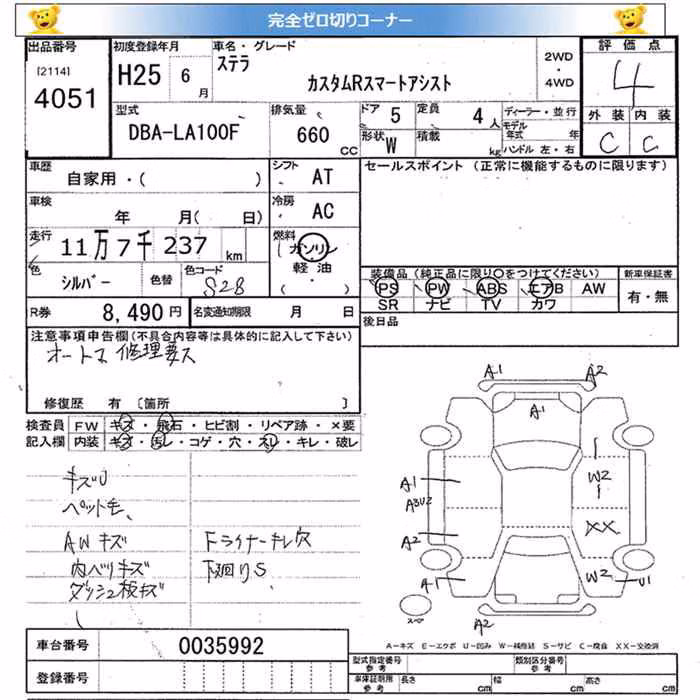 完全ゼロ切りコーナー
出品番号
[2114]
4051
初度登録年月
H25 6月
車名・グレード
ステラ
カスタムRスマートアシスト
2WD
・
4WD
評価点
4
外装 内装
C C
型式
DBA-LA100F
排気量
660 CC
ドア 5
形状 W
定員 4人
積載 kg
ディーラー・並行
モデル年式 年
ハンドル 左・右
車歴
自家用・( )
シフト
AT
セールスポイント (正常に機能するものに限ります)
車検
年 月( 日)
冷房
AC
走行
11万7千237 km
燃料
ガソリン
軽油
色
シルバー
色替
色コード
S28
装備品 (純正品に限り○をつけてください)
新車保証書
PS PW ABS エアB AW
SR ナビ TV カワ
有・無
R券
8,490円
名変通知期限 月 日
後日品
注意事項申告欄(不具合内容等は具体的に記入して下さい)
オートマ 修理要ス
修復歴 有 〔箇所 〕
検査員
記入欄
FW キズ・飛石・ヒビ割・リペア跡・×要
内装 キズ・汚レ・コゲ・穴・スレ・キレ・破レ
キズU
ペット毛
AWキズ
内ベリキズ
ダッシュ板キズ
Fライナーキレ穴
下廻りS
A1
A2
A1
A1
A3U2
A2
A1
W2
XX
W2
U1
A2
スペア
A=キズ E=エクボ U=凹み W=補修跡 S=サビ C=腐食 XX=交換済
車台番号 0035992
登録番号
型式指定番号
参考
類別区分番号
参考
車庫証明用
参考
長さ cm
幅 cm
高さ cm